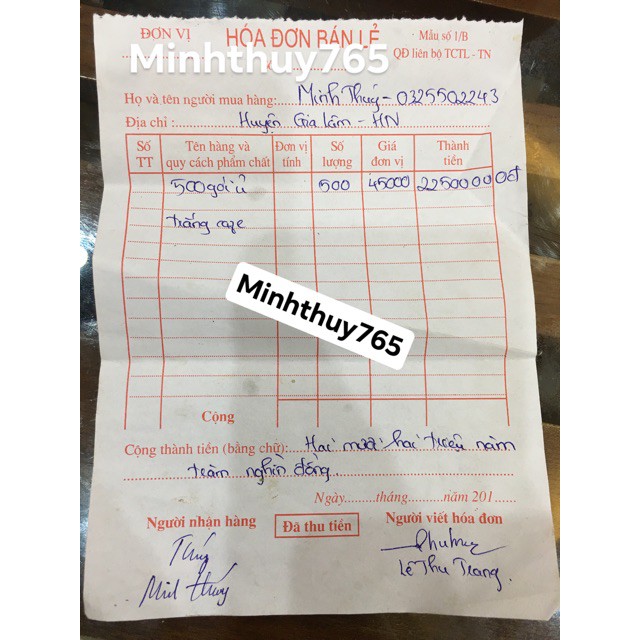 ĐƠN VỊ
HÓA ĐƠN BÁN LẺ
Mẫu số 1/B
QĐ liên bộ TCTL - TN
Minhthuy765
Họ và tên người mua hàng: Minh Thúy - 0325502243
Địa chỉ: Huyện Gia Lâm - HN
Số TT
Tên hàng và quy cách phẩm chất
Đơn vị tính
Số lượng
Giá đơn vị
Thành tiền
500 gói ủ 500 45000 22500000đ
trắng
Minhthuy765
Cộng
Cộng thành tiền (bằng chữ): Hai mươi hai triệu năm
trăm nghìn đồng.
Ngày......tháng......năm 201....
Người nhận hàng
Đã thu tiền
Người viết hóa đơn
Thúy
Minh Thúy
Lê Thu Trang.